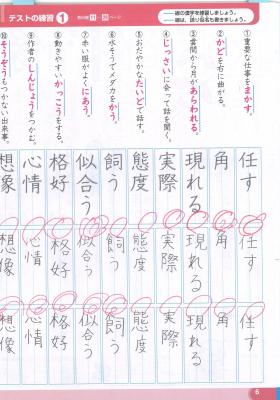 テストの練習 1 教科書 ページ
―線の漢字を練習しましょう。
―線は、送り仮名も書きましょう。
①重要な仕事をまかす。
②かどを右に曲がる。
③雲間から月があらわれる。
④じっさいに会って話を聞く。
⑤おだやかなたいどで話す。
⑥水そうでメダカをかう。
⑦赤い服がよくにあう。
⑧動きやすいかっこうをする。
⑨作者のしんじょうをつかむ。
⑩そうぞうもつかない出来事。
任す 任す 任す
角 角 角
現れる 現れる 現れる
実際 実際 実際
態度 態度 態度
飼う 飼う 飼う
似合う 似合う 似合う
格好 格好 格好
心情 心情 心情
想像 想像 想像
6